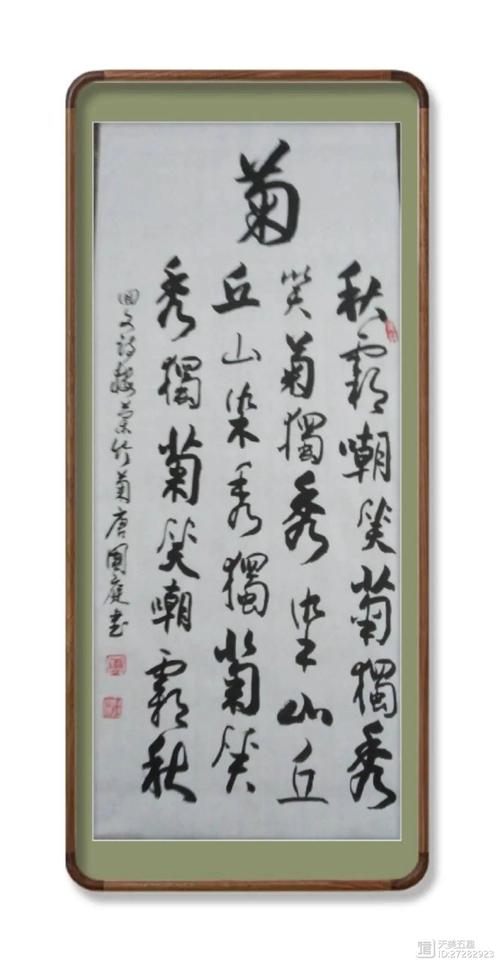 菊
秋霜嘲笑菊獨秀
笑菊獨秀染山丘
丘山染秀獨菊笑
秀獨菊笑嘲霜秋
回文詩梅蘭竹菊唐國庭書
天美五星
ID:27282923